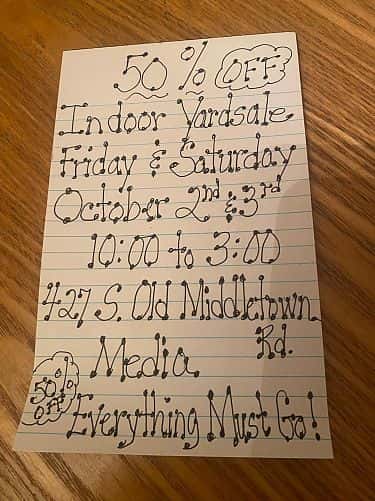 50% OFF
Indoor Yardsale
Friday & Saturday
October 2nd & 3rd
10:00 to 3:00
427 S. Old Middletown
Rd.
Media
50% off
Everything Must Go!